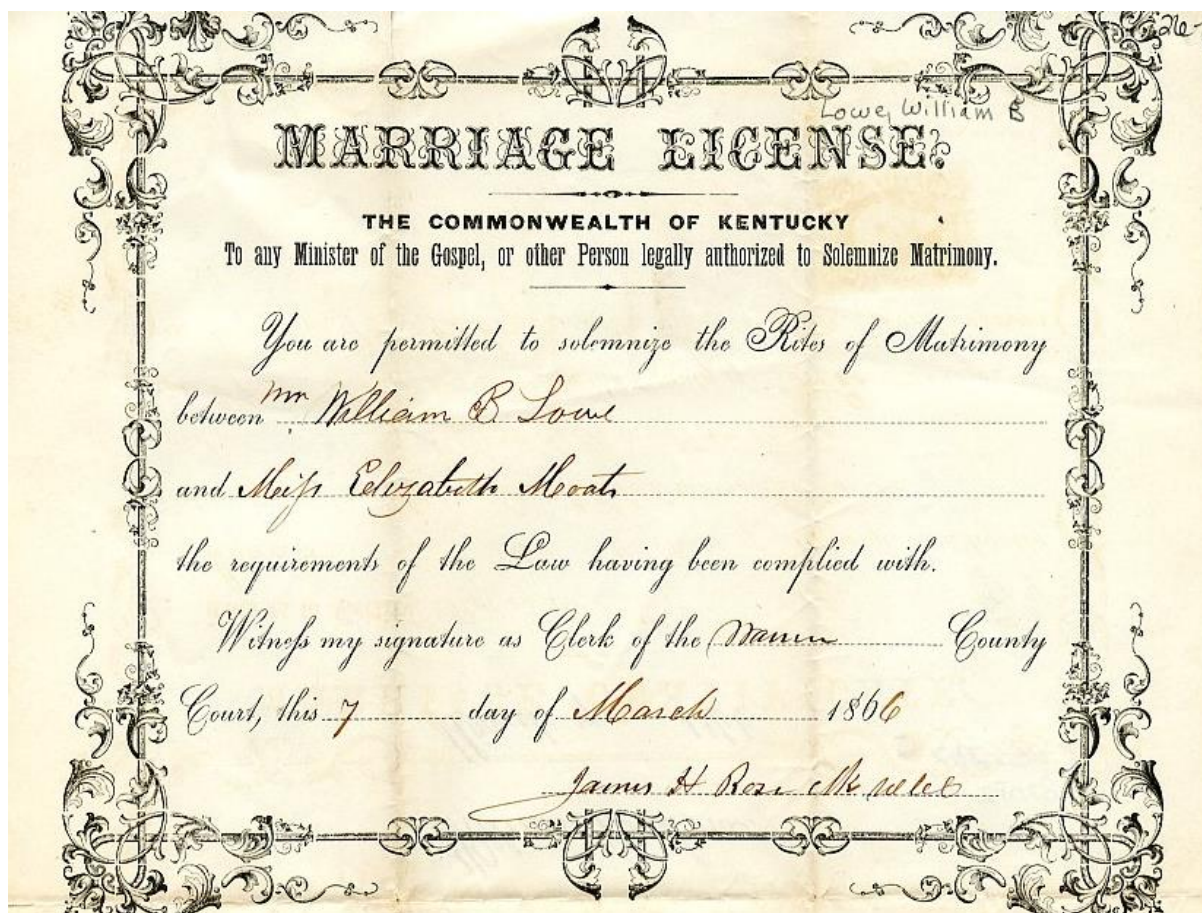 26
Lowe, William B
MARRIAGE LICENSE.
THE COMMONWEALTH OF KENTUCKY
To any Minister of the Gospel, or other Person legally authorized to Solemnize Matrimony.
You are permitted to solemnize the Rites of Matrimony
between Mr William B Lowe
and Miſs Elizabeth Moats
the requirements of the Law having been complied with.
Witneſs my signature as Clerk of the Warren County
Court, this 7 day of March 1866
James H Rose Clk